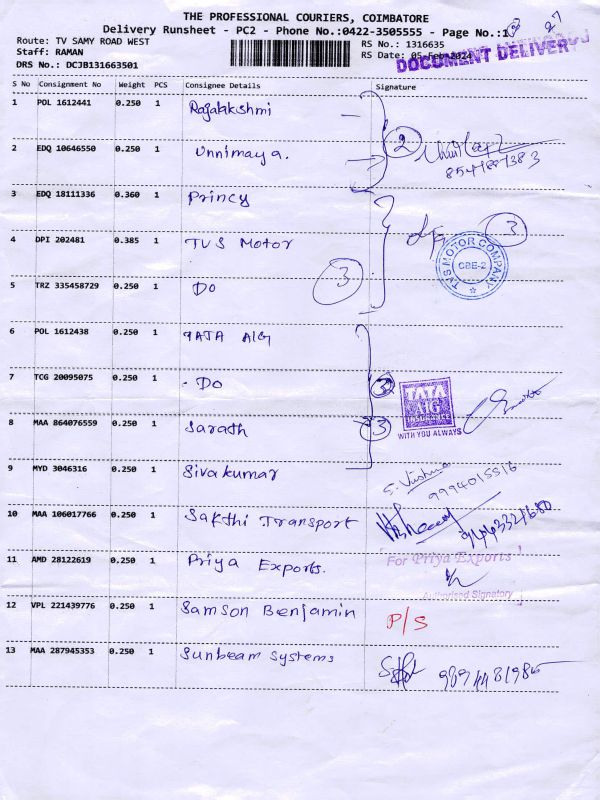 THE PROFESSIONAL COURIERS, COIMBATORE
Delivery Runsheet - PC2 - Phone No.:0422-3505555 - Page No.:1
Route: TV SAMY ROAD WEST
RS No.: 1316635
Staff: RAMAN
RS Date: 05-Feb-2024
DOCUMENT DELIVERY
DRS No.: DCJB131663501
S No Consignment No Weight PCS Consignee Details Signature
1 POL 1612441 0.250 1 Rajalakshmi
2 EDQ 10646550 0.250 1 Unnimaya. 2
3 EDQ 18111336 0.360 1 Princy
4 DPI 202481 0.385 1 TVS Motor 3
TVS MOTOR COMPANY
CBE-2
5 TRZ 335458729 0.250 1 DO 3
6 POL 1612438 0.250 1 TATA AIG
7 TCG 20095075 0.250 1 - DO 3
TATA
AIG
INSURANCE
WITH YOU ALWAYS
8 MAA 864076559 0.250 1 Sarath 3
9 MYD 3046316 0.250 1 Sivakumar
9994015516
10 MAA 106017766 0.250 1 Sakthi Transport
11 AMD 28122619 0.250 1 Priya Exports.
For Priya Exports
Authorised Signatory
12 VPL 221439776 0.250 1 Samson Benjamin P/S
13 MAA 287945353 0.250 1 Sunbeam Systems